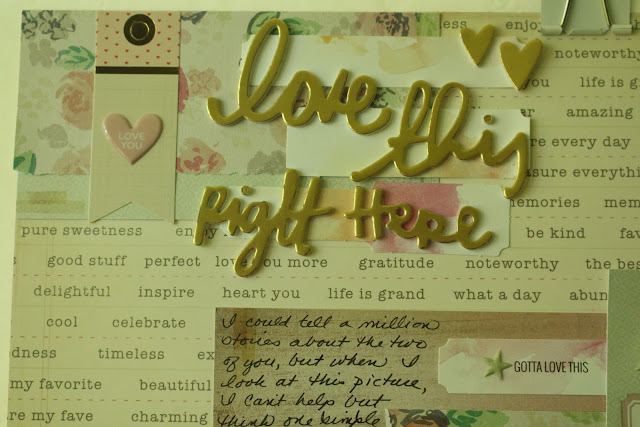 less enjoy
noteworthy
you life is g
love this
LOVE
YOU
er amazing
ure every day
easure everything
right Here
memories mem
pure sweetness enjoy be kind favo
s good stuff perfect love you more gratitude noteworthy the bes
delightful inspire heart you life is grand what a day abun
cool celebrate
I could tell a million
stories about the two
of you, but when I
look at this picture,
I can't help but
think one simple
dness timeless ex
GOTTA LOVE THIS
my favorite beautiful
are my fave charming